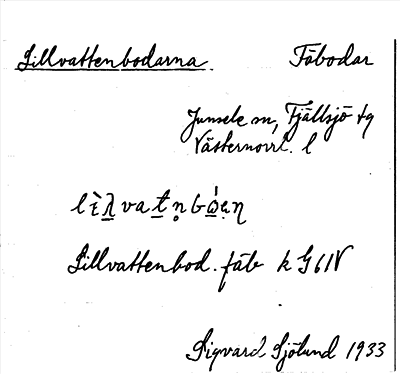 Lillvattenbodarna Fäbodar
Junsele sn, Fjällsjö tg
Västernorrl. l
Lillvattenbod. fäb k G61V
Sigvard Sjölund 1933